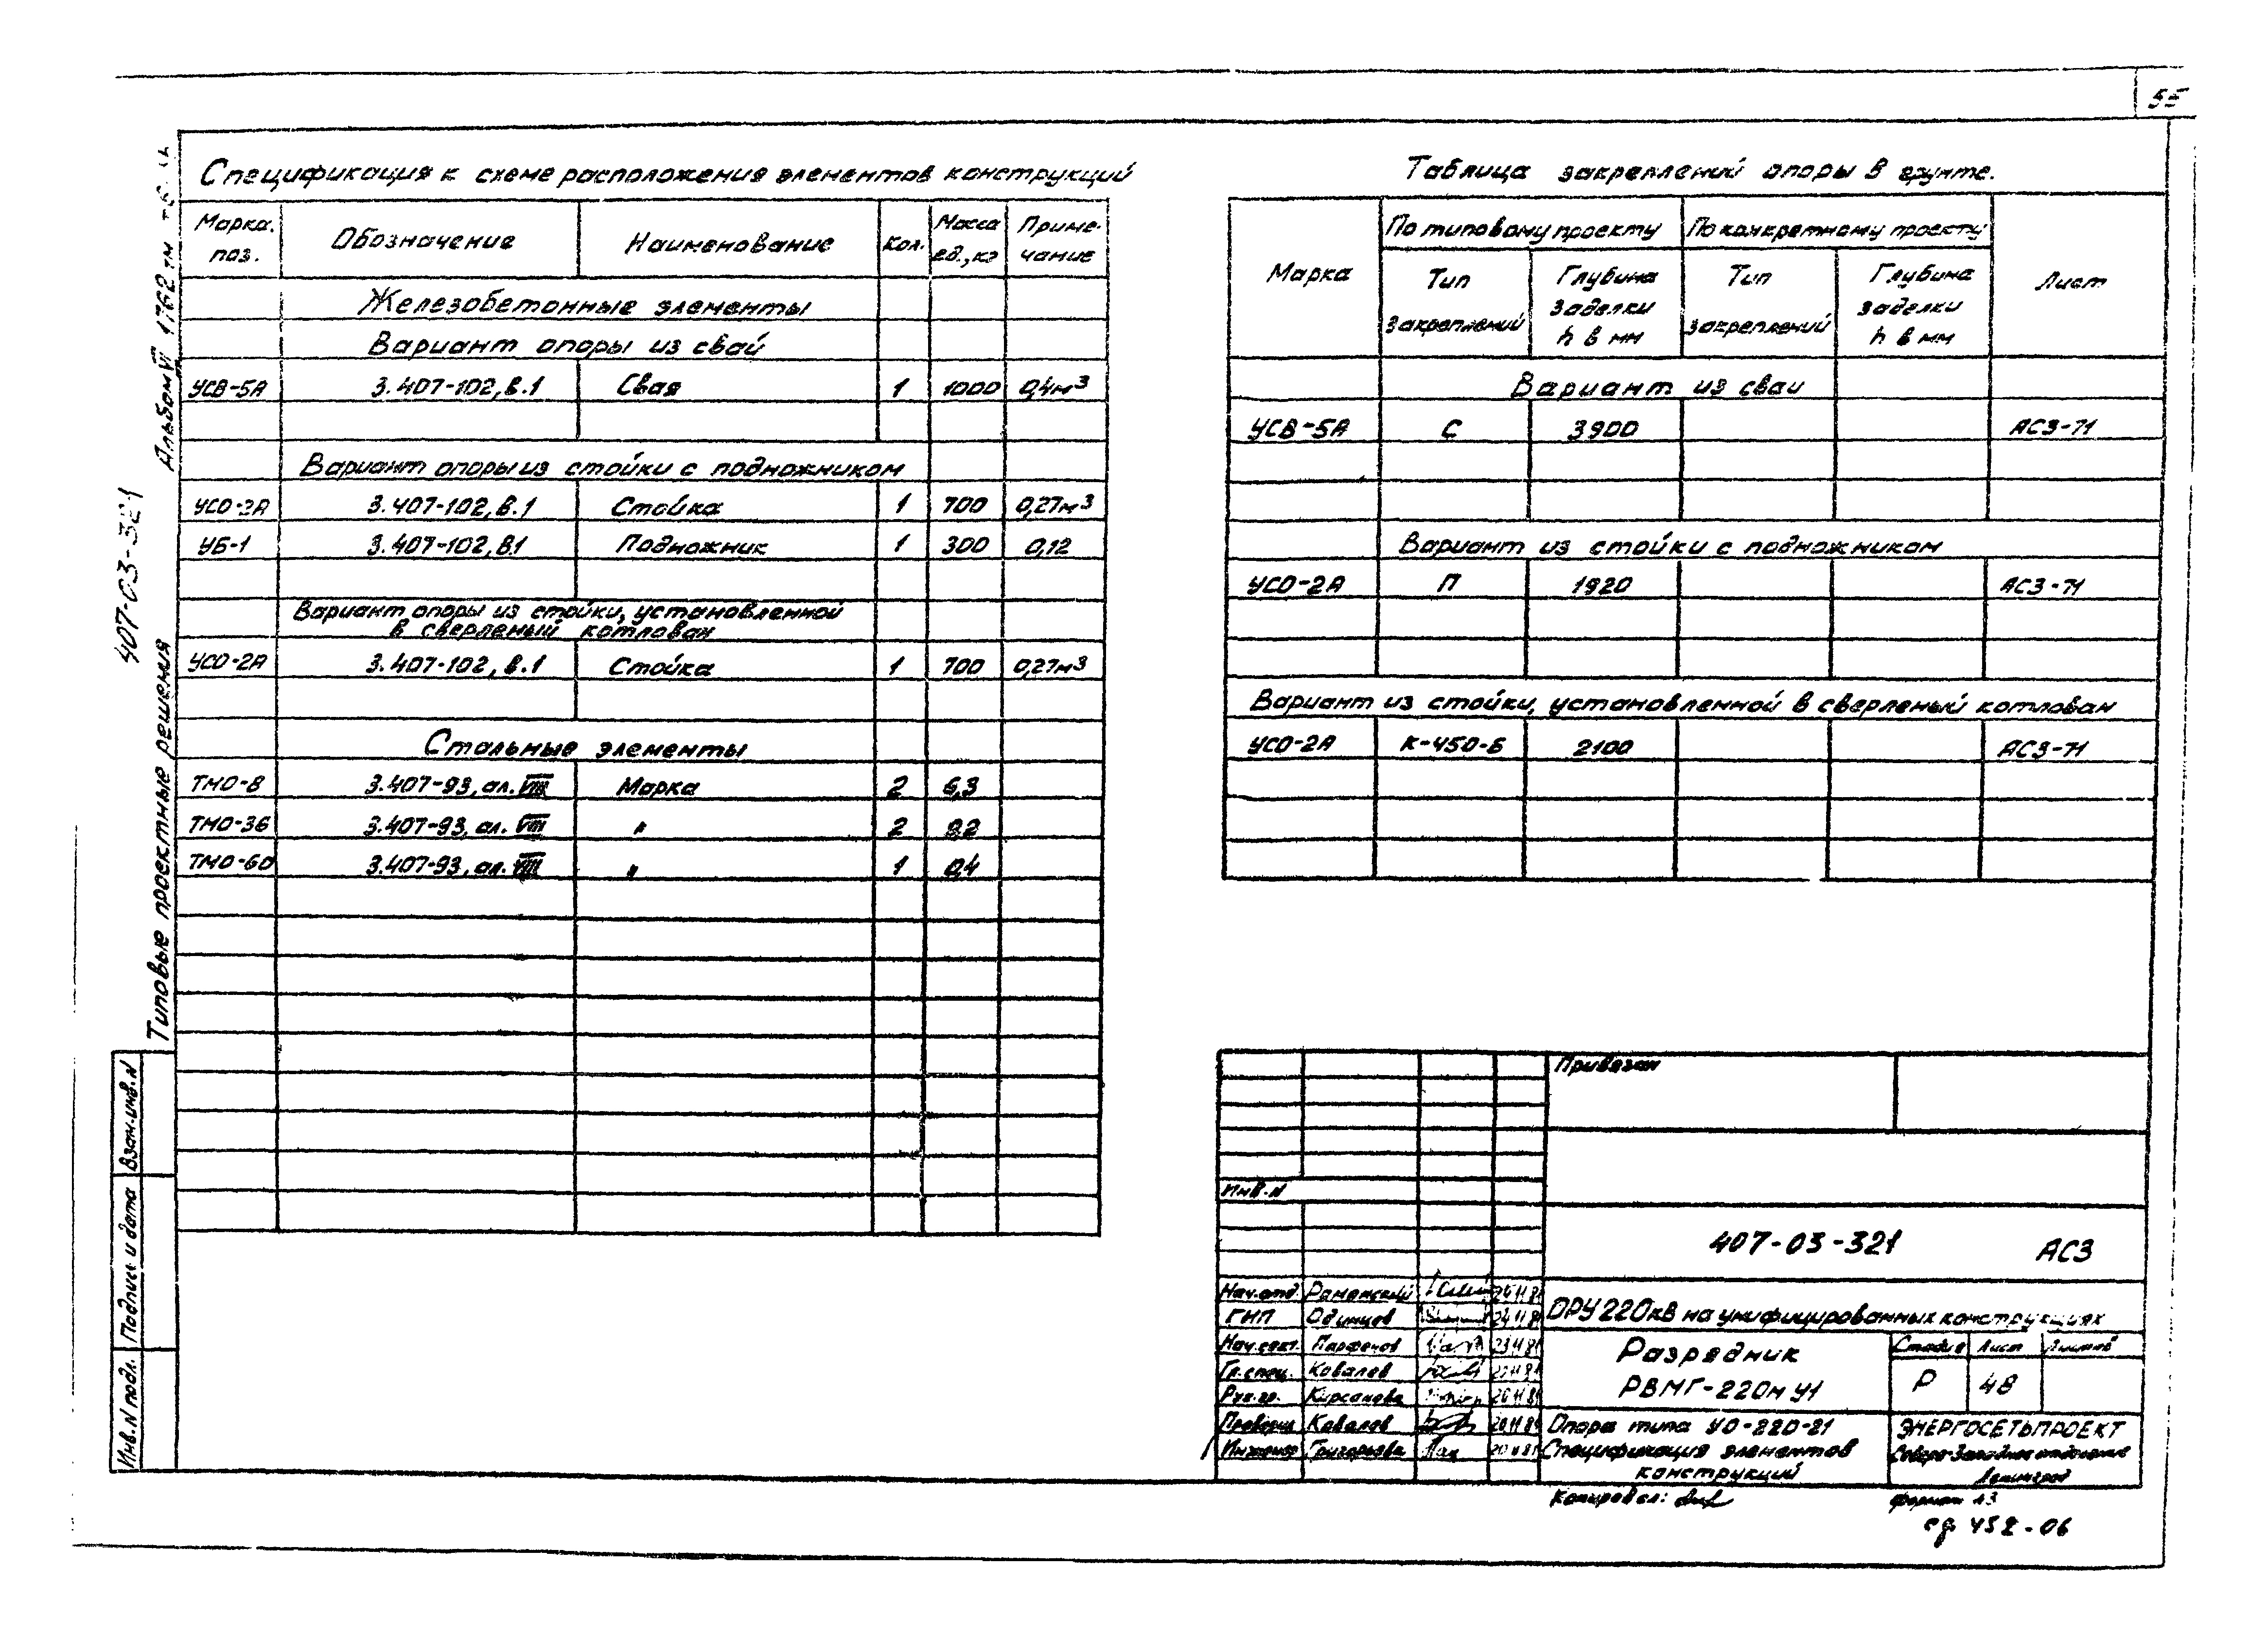 55
Спецификация к схеме расположения элементов конструкций
Марка. поз. Обозначение Наименование Кол. Масса ед., кг Приме-чание
Железобетонные элементы
Вариант опоры из свай
УСВ-5А 3.407-102, в.1 Свая 1 1000 0,4м³
Вариант опоры из стойки с подножником
УСО-2А 3.407-102, в.1 Стойка 1 700 0,27м³
УБ-1 3.407-102, в.1 Подножник 1 300 0,12
Вариант опоры из стойки, установленной
в сверленый котлован
УСО-2А 3.407-102, в.1 Стойка 1 700 0,27м³
Стальные элементы
ТМО-8 3.407-93, ал. VIII Марка 2 6,3
ТМО-36 3.407-93, ал. VIII " 2
ТМО-60 3.407-93, ал. VIII " 1 0,4
Таблица закреплений опоры в грунте.
Марка По типовому проекту По конкретному проекту Лист
Тип закреплений Глубина заделки h в мм Тип закреплений Глубина заделки h в мм
Вариант из сваи
УСВ-5А С 3900 АС3-71
Вариант из стойки с подножником
УСО-2А П 1920 АС3-71
Вариант из стойки, установленной в сверленый котлован
УСО-2А К-450-Б 2100 АС3-71
Альбом VI
407-03-321
Типовые проектные решения
Взам.инв.N
Подпись и дата
Инв.N подл.
Привязан
Инв.N
407-03-321 АС3
Нач.отд. Роменский
ГИП Одинцов
Нач.сект. Парфенов
Гл.спец. Ковалев
Рук.гр. Кирсанова
Проверил Ковалев
Инженер Григорьева
ОРУ 220кВ на унифицированных конструкциях
Разрядник
РВМГ-220м У1
Стадия Лист Листов
Р 48
Опора типа УО-220-21
Спецификация элементов
конструкций
ЭНЕРГОСЕТЬПРОЕКТ
Северо-Западное отделение
Ленинград
Копировал:
формат А3